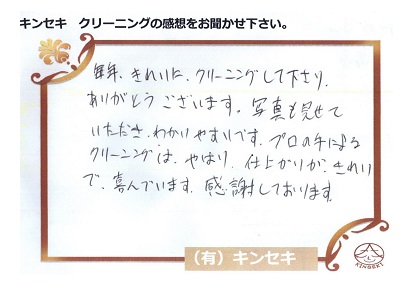 キンセキ　クリーニングの感想をお聞かせ下さい。
毎年、きれいに、クリーニングして下さり、
ありがとうございます。写真も見せて
いただき、わかりやすいです。プロの手による
クリーニングは、やはり、仕上がりが、きれい
で、喜んでいます。感謝しております。
（有）キンセキ
KINSEKI